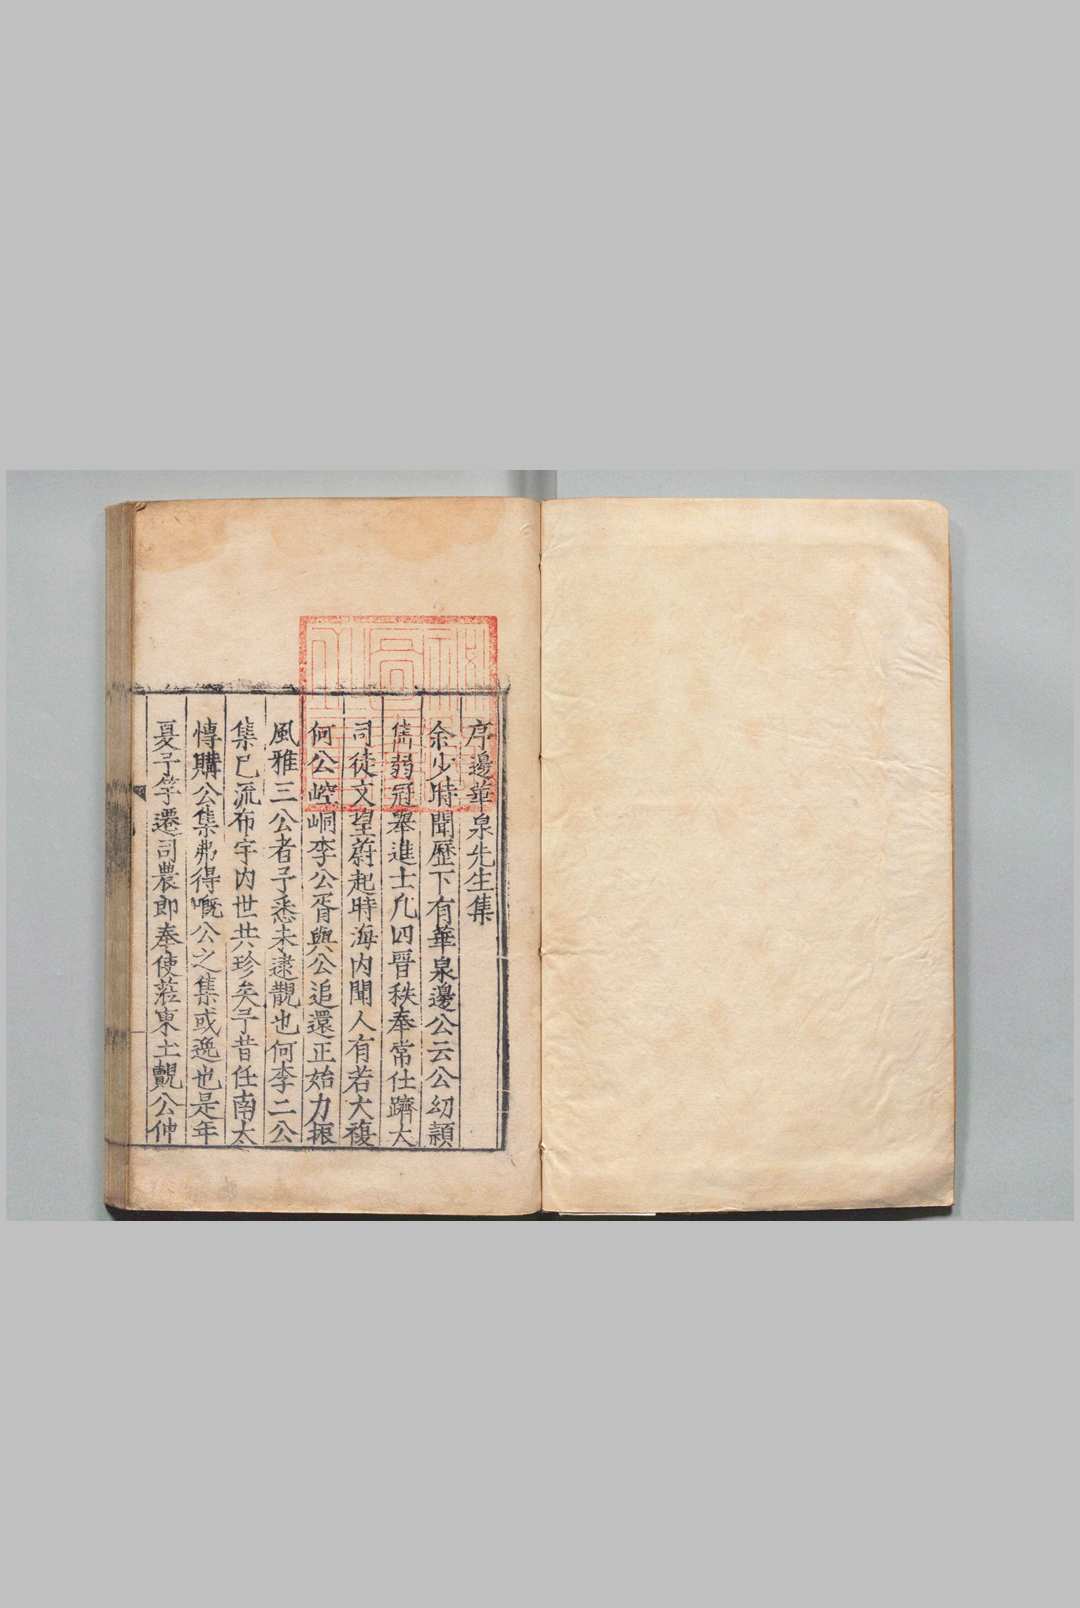 序邊華泉先生集
余少時聞歷下有華泉邊公云公幼穎
雋弱冠舉進士凡四晉秩奉常仕躋大
司徒文望蔚起時海内聞人有若大復
何公崆峒李公胥與公追還正始力振
風雅三公者予悉未逮覯也何李二公
集已流布宇内世共珍矣予昔任南太
博購公集弗得嘅公之集或逸也是年
夏予竽遷司農郎奉使蒞東土覯公仲